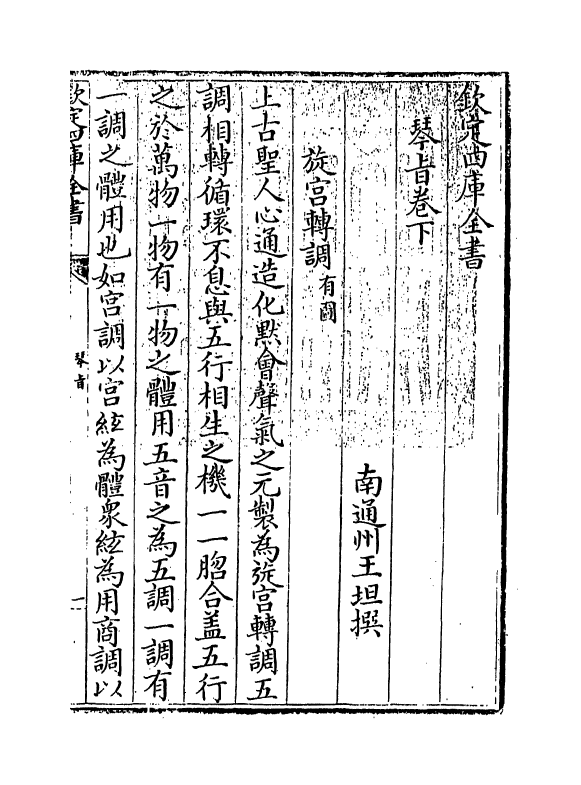 欽定四庫全書
琴旨卷下
南通州王坦撰
旋宫轉調有圖
上古聖人心通造化黙會聲氣之元製為旋宫轉調五
調相轉循環不息與五行相生之機一一脗合盖五行
之於萬物一物有一物之體用五音之為五調一調有
一調之體用也如宫調以宫絃為體衆絃為用商調以
欽定四庫全書
琴旨
一